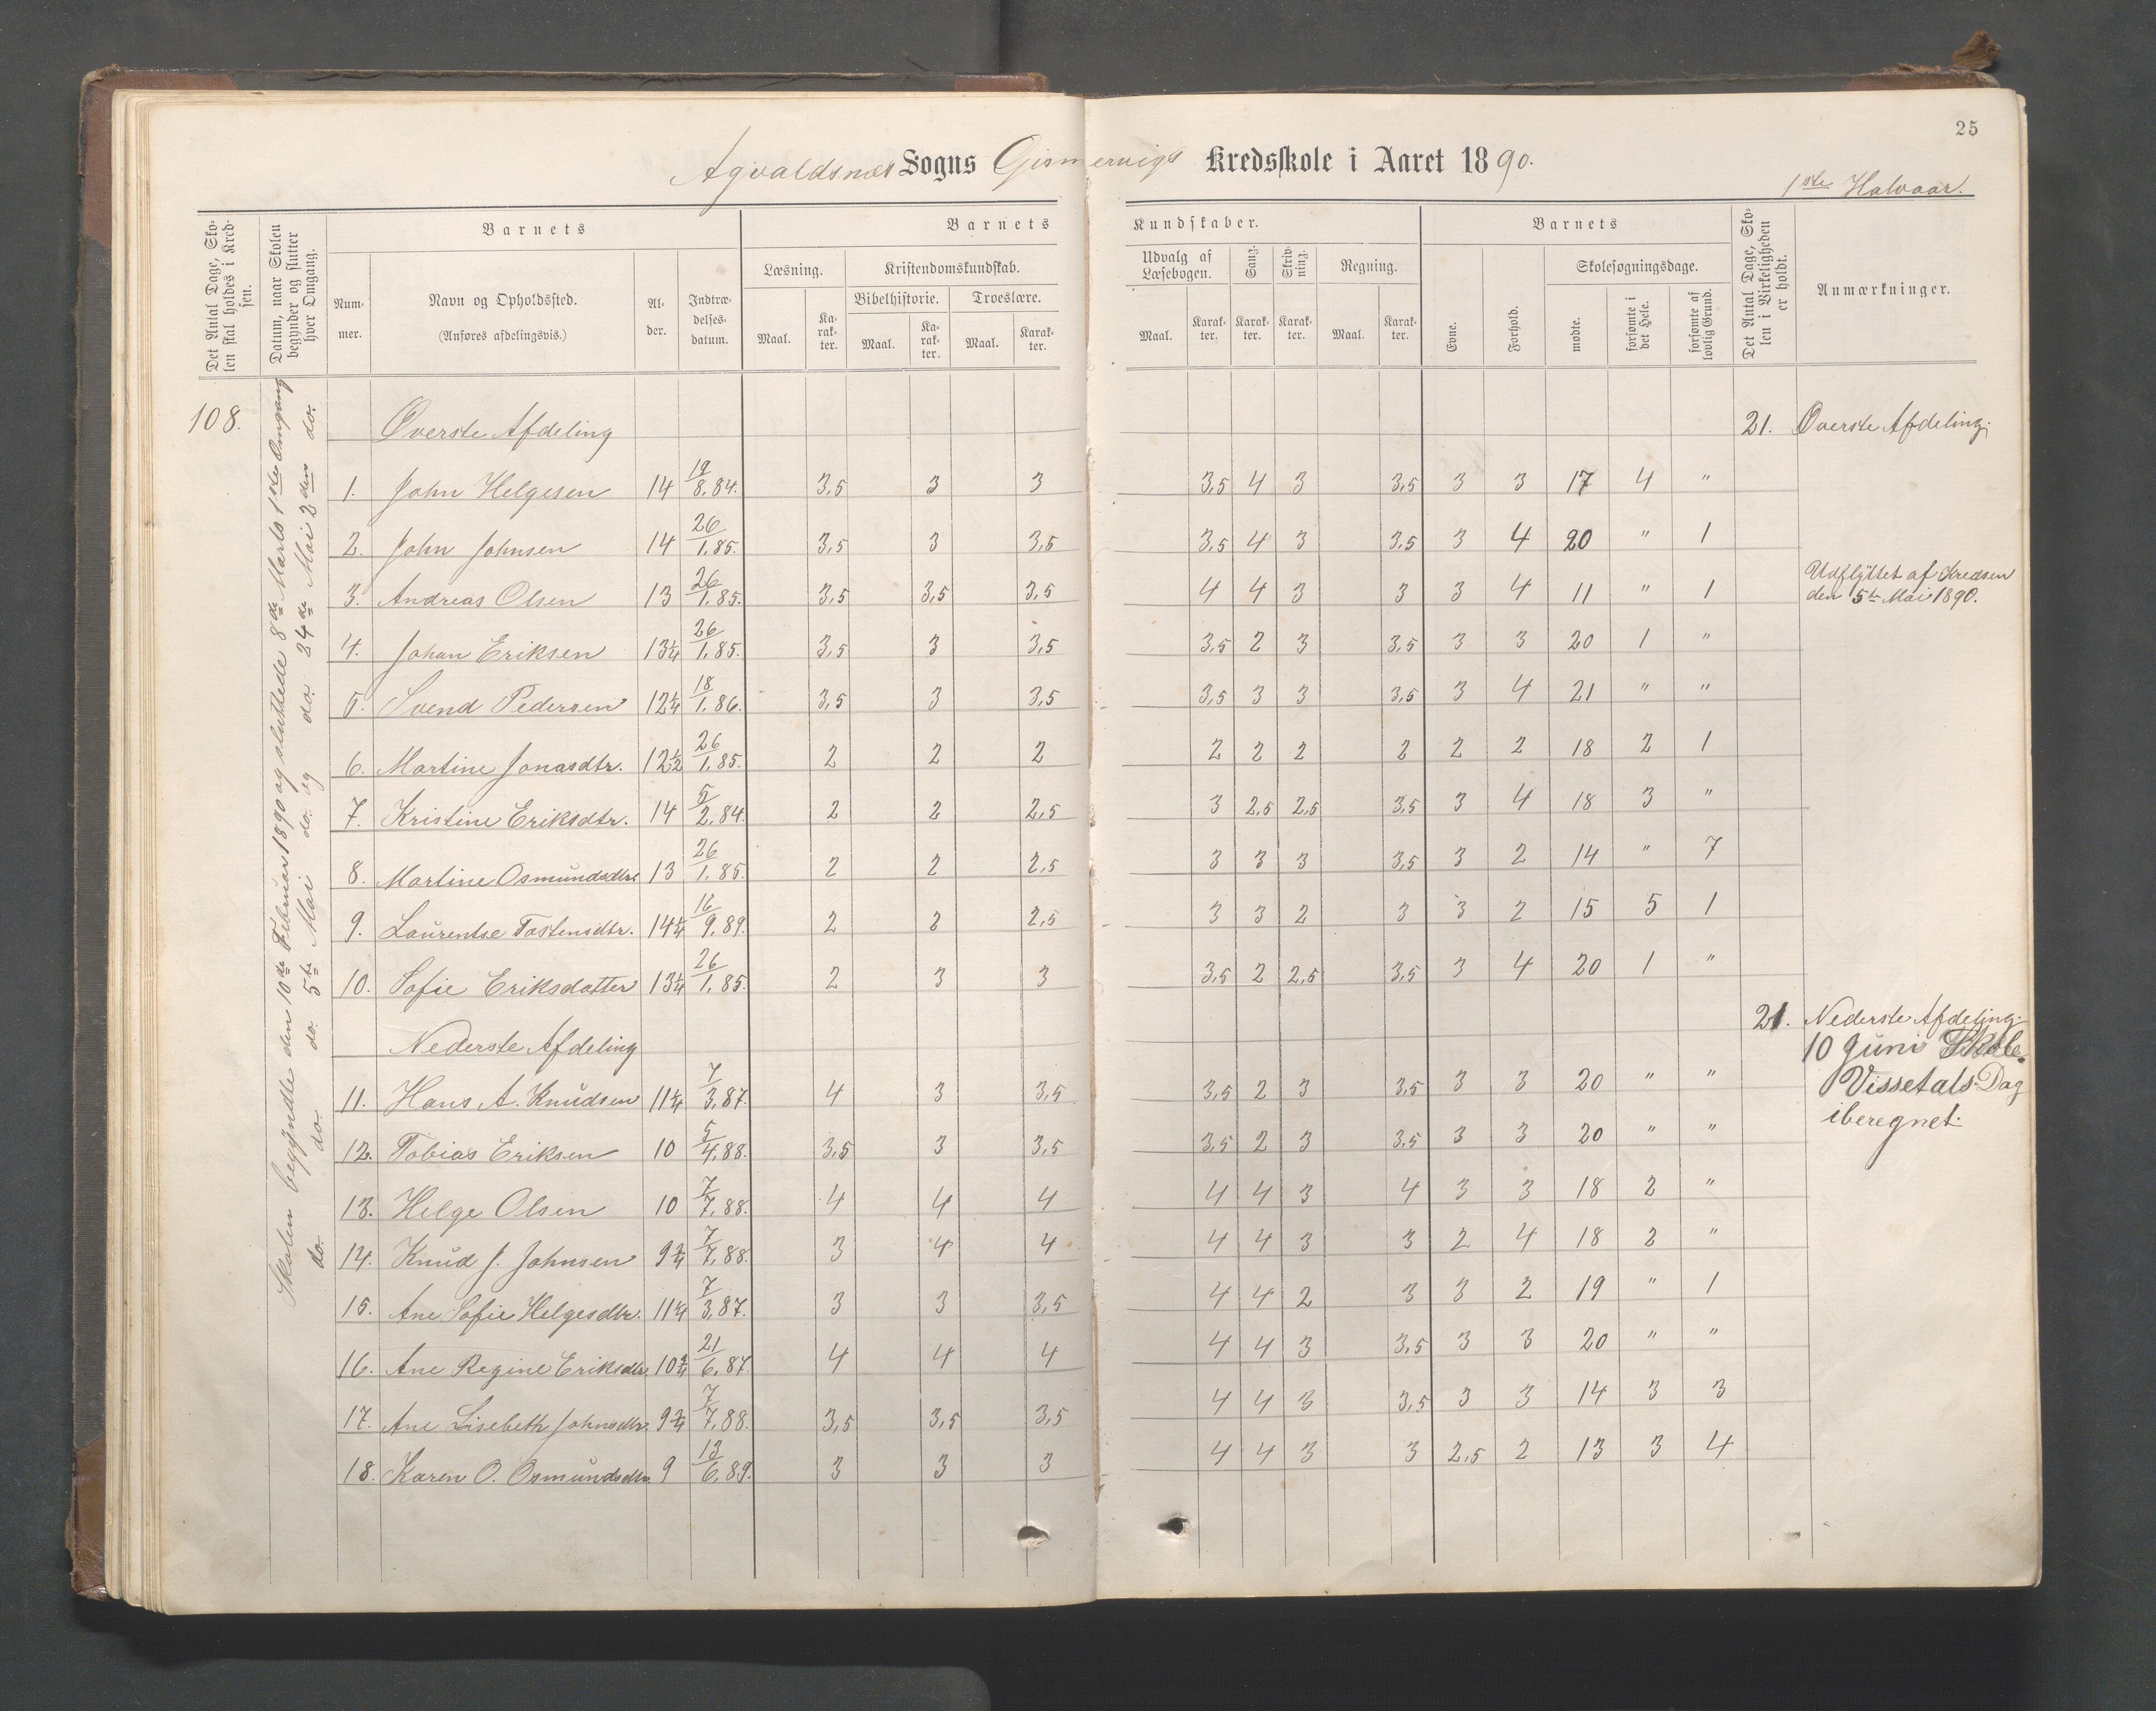 25
Agvaldsnæs Sogns Gismervigs Kredsskole i Aaret 1890.
1ste Halvaar.
Det Antal Dage, Skolen skal holdes i Kredsen.
Datum, naar Skolen begynder og slutter hver Omgang.
Barnets
Nummer.
Navn og Opholdssted.
(Anføres afdelingsvis.)
Alder.
Indtrædelsesdatum.
Barnets Kundskaber.
Læsning.
Maal.
Karakter.
Kristendomskundskab.
Bibelhistorie.
Maal.
Karakter.
Troeslære.
Maal.
Karakter.
Udvalg af Læsebogen.
Maal.
Karakter.
Sang.
Karakter.
Skrivning.
Karakter.
Regning.
Maal.
Karakter.
Barnets
Evne.
Forhold.
Skolesøgningsdage.
mødte.
forsømte i det Hele.
forsømte af lovlig Grund.
Det Antal Dage, Skolen i Virkeligheden er holdt.
Anmærkninger.
108.
Skolen begyndte den 10de Februar 1890 og sluttede 8de Marts 1ste Omgang
do. do. do. 5te Mai do. og do. 24de Mai 2den do.
Øverste Afdeling 21. Øverste Afdeling.
1. John Helgesen 14 19/8.84. 3,5 3 3 3,5 4 3 3,5 3 3 17 4 "
2. John Johnsen 14 26/1.85. 3,5 3 3,5 3,5 4 3 3,5 3 4 20 " 1
3. Andreas Olsen 13 26/1.85. 3,5 3,5 3,5 4 4 3 3 3 4 11 " 1 Udflyttet af Kredsen
den 5te Mai 1890.
4. Johan Eriksen 13 1/4 26/1.85. 3,5 3 3,5 3,5 2 3 3,5 3 3 20 1 "
5. Svend Pedersen 12 1/4 18/1.86. 3,5 3 3,5 3,5 3 3 3,5 3 4 21 " "
6. Martine Jonasdtr. 12 1/2 26/1.85. 2 2 2 2 2 2 2 2 2 18 2 1
7. Kristine Eriksdtr. 14 5/2.84. 2 2 2,5 3 2,5 2,5 3,5 3 4 18 3 "
8. Martine Osmundsdtr. 13 26/1.85. 2 2 2,5 3 3 3 3,5 3 2 14 " 7
9. Laurentse Tostensdtr. 14 1/4 16/9.89. 2 2 2,5 3 3 2 3 3 2 15 5 1
10. Sofie Eriksdatter 13 1/4 26/1.85. 2 3 3 3,5 2 2,5 3,5 3 4 20 1 "
Nederste Afdeling 21. Nederste Afdeling.
10 Juni Skole
Vissetals Dag
iberegnet.
11. Hans A. Knudsen 11 1/4 7/3.87. 4 3 3,5 3,5 2 3 3,5 3 3 20 " "
12. Tobias Eriksen 10 5/4.88. 3,5 3 3,5 3,5 2 3 3,5 3 3 20 " "
13. Helge Olsen 10 7/7.88. 4 4 4 4 4 3 4 3 3 18 2 "
14. Knud J. Johnsen 9 3/4 7/7.88. 3 4 4 4 4 3 3 2 4 18 2 "
15. Ane Sofie Helgesdtr. 11 1/4 7/3.87. 3 3 3,5 4 4 2 3 3 2 19 " 1
16. Ane Regine Eriksdtr. 10 3/4 21/6.87. 4 4 4 4 4 3 3,5 3 3 20 " "
17. Ane Lisebeth Johnsdtr. 9 3/4 7/7.88. 3,5 3,5 3,5 4 4 3 3,5 3 3 14 3 3
18. Karen O. Osmundsdtr. 9 13/6.89. 3 3 3 4 4 3 3 2,5 2 13 3 4